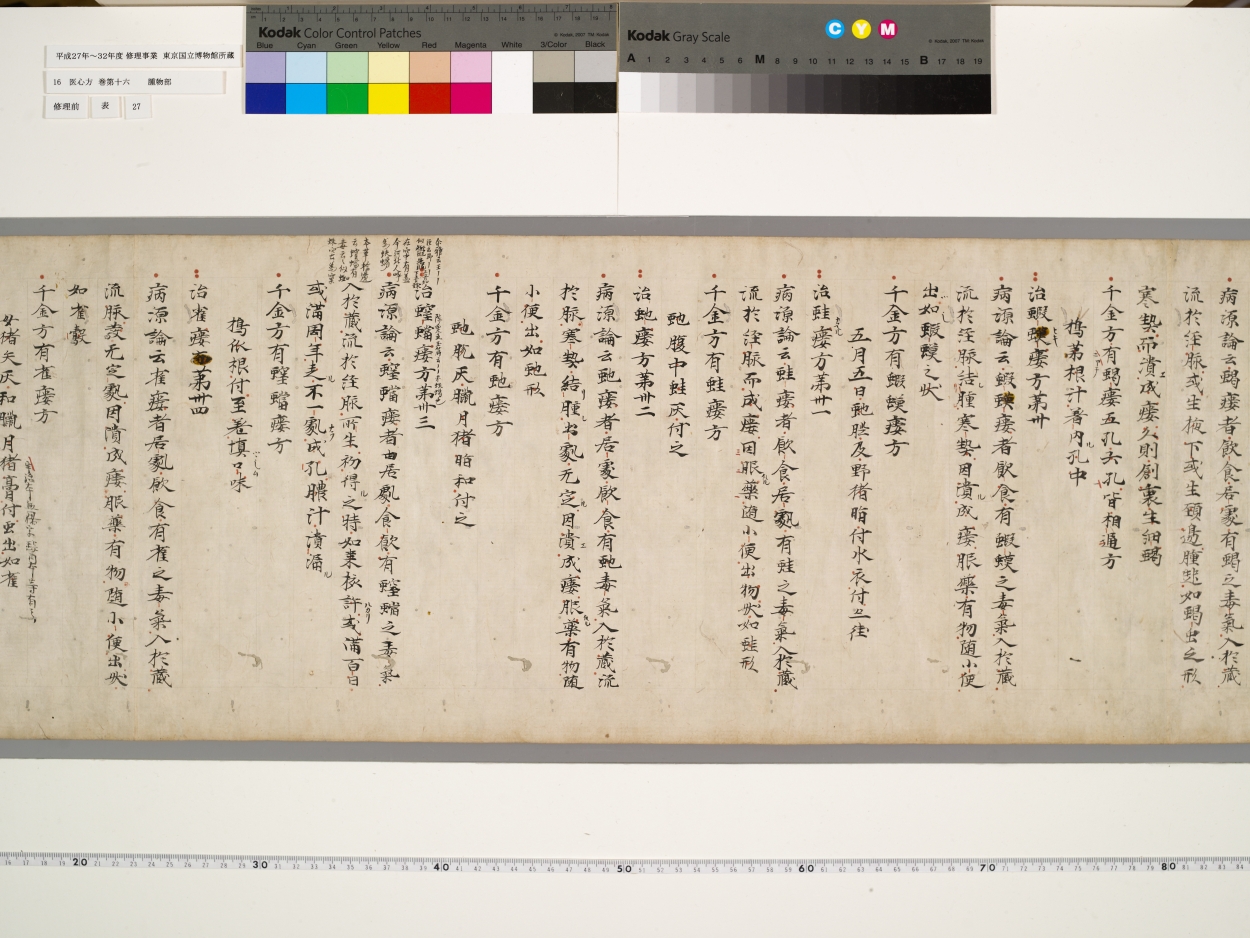 平成27年～32年度 修理事業 東京国立博物館所蔵
16 医心方 巻第十六 腫物部
修理前 表 27
Kodak Color Control Patches
Blue Cyan Green Yellow Red Magenta White 3/Color Black
Kodak Gray Scale
C Y M
A 1 2 3 4 5 6 M 8 9 10 11 12 13 14 15 B 17 18 19
病源論云蝎瘻者飲食居處有蝎之毒氣入於藏
流於経脉或生掖下或生頸邊腫起如蝎虫之形
寒熱而潰成瘻久則創裏生細蝎
千金方有蝎瘻五孔六孔皆相通方
搗茀根汁著内孔中
治蝦蟆瘻方第卅
病源論云蝦蟆瘻者飲食有蝦蟆之毒氣入於藏
流於経脉結腫寒熱因潰成瘻服藥有物随小便
出如蝦蟆之状
千金方有蝦蟆瘻方
五月五日虵頭及野猪脂付水衣付之佳
治蛙瘻方第卅一
病源論云蛙瘻者飲食居處有蛙之毒氣入於藏
流於経脉而成瘻因服藥随小便出物状如蛙形
千金方有蛙瘻方
虵腹中蛙灰付之
治虵瘻方第卅二
病源論云虵瘻者居處飲食有虵毒氣入於藏流
於脉寒熱結腫出處无定因潰成瘻服藥有物随
小便出如虵形
千金方有虵瘻方
虵蛻灰臘月猪脂和付之
治螲蟷瘻方第卅三
病源論云螲蟷瘻者由居處食飲有螲蟷之毒氣
入於藏流於経脉所生初得之時如棗核許或滿百日
或滿周年走不一處成孔膿汁潰漏
千金方有螲蟷瘻方
搗依根付至差慎口味
治雀瘻方第卅四
病源論云雀瘻者居處飲食有雀之毒氣入於藏
流脉發无定處因潰成瘻服藥有物随小便出状
如雀鷇
千金方有雀瘻方
女猪矢灰和臘月猪膏付虫出如雀
20 30 40 50 60 70 80